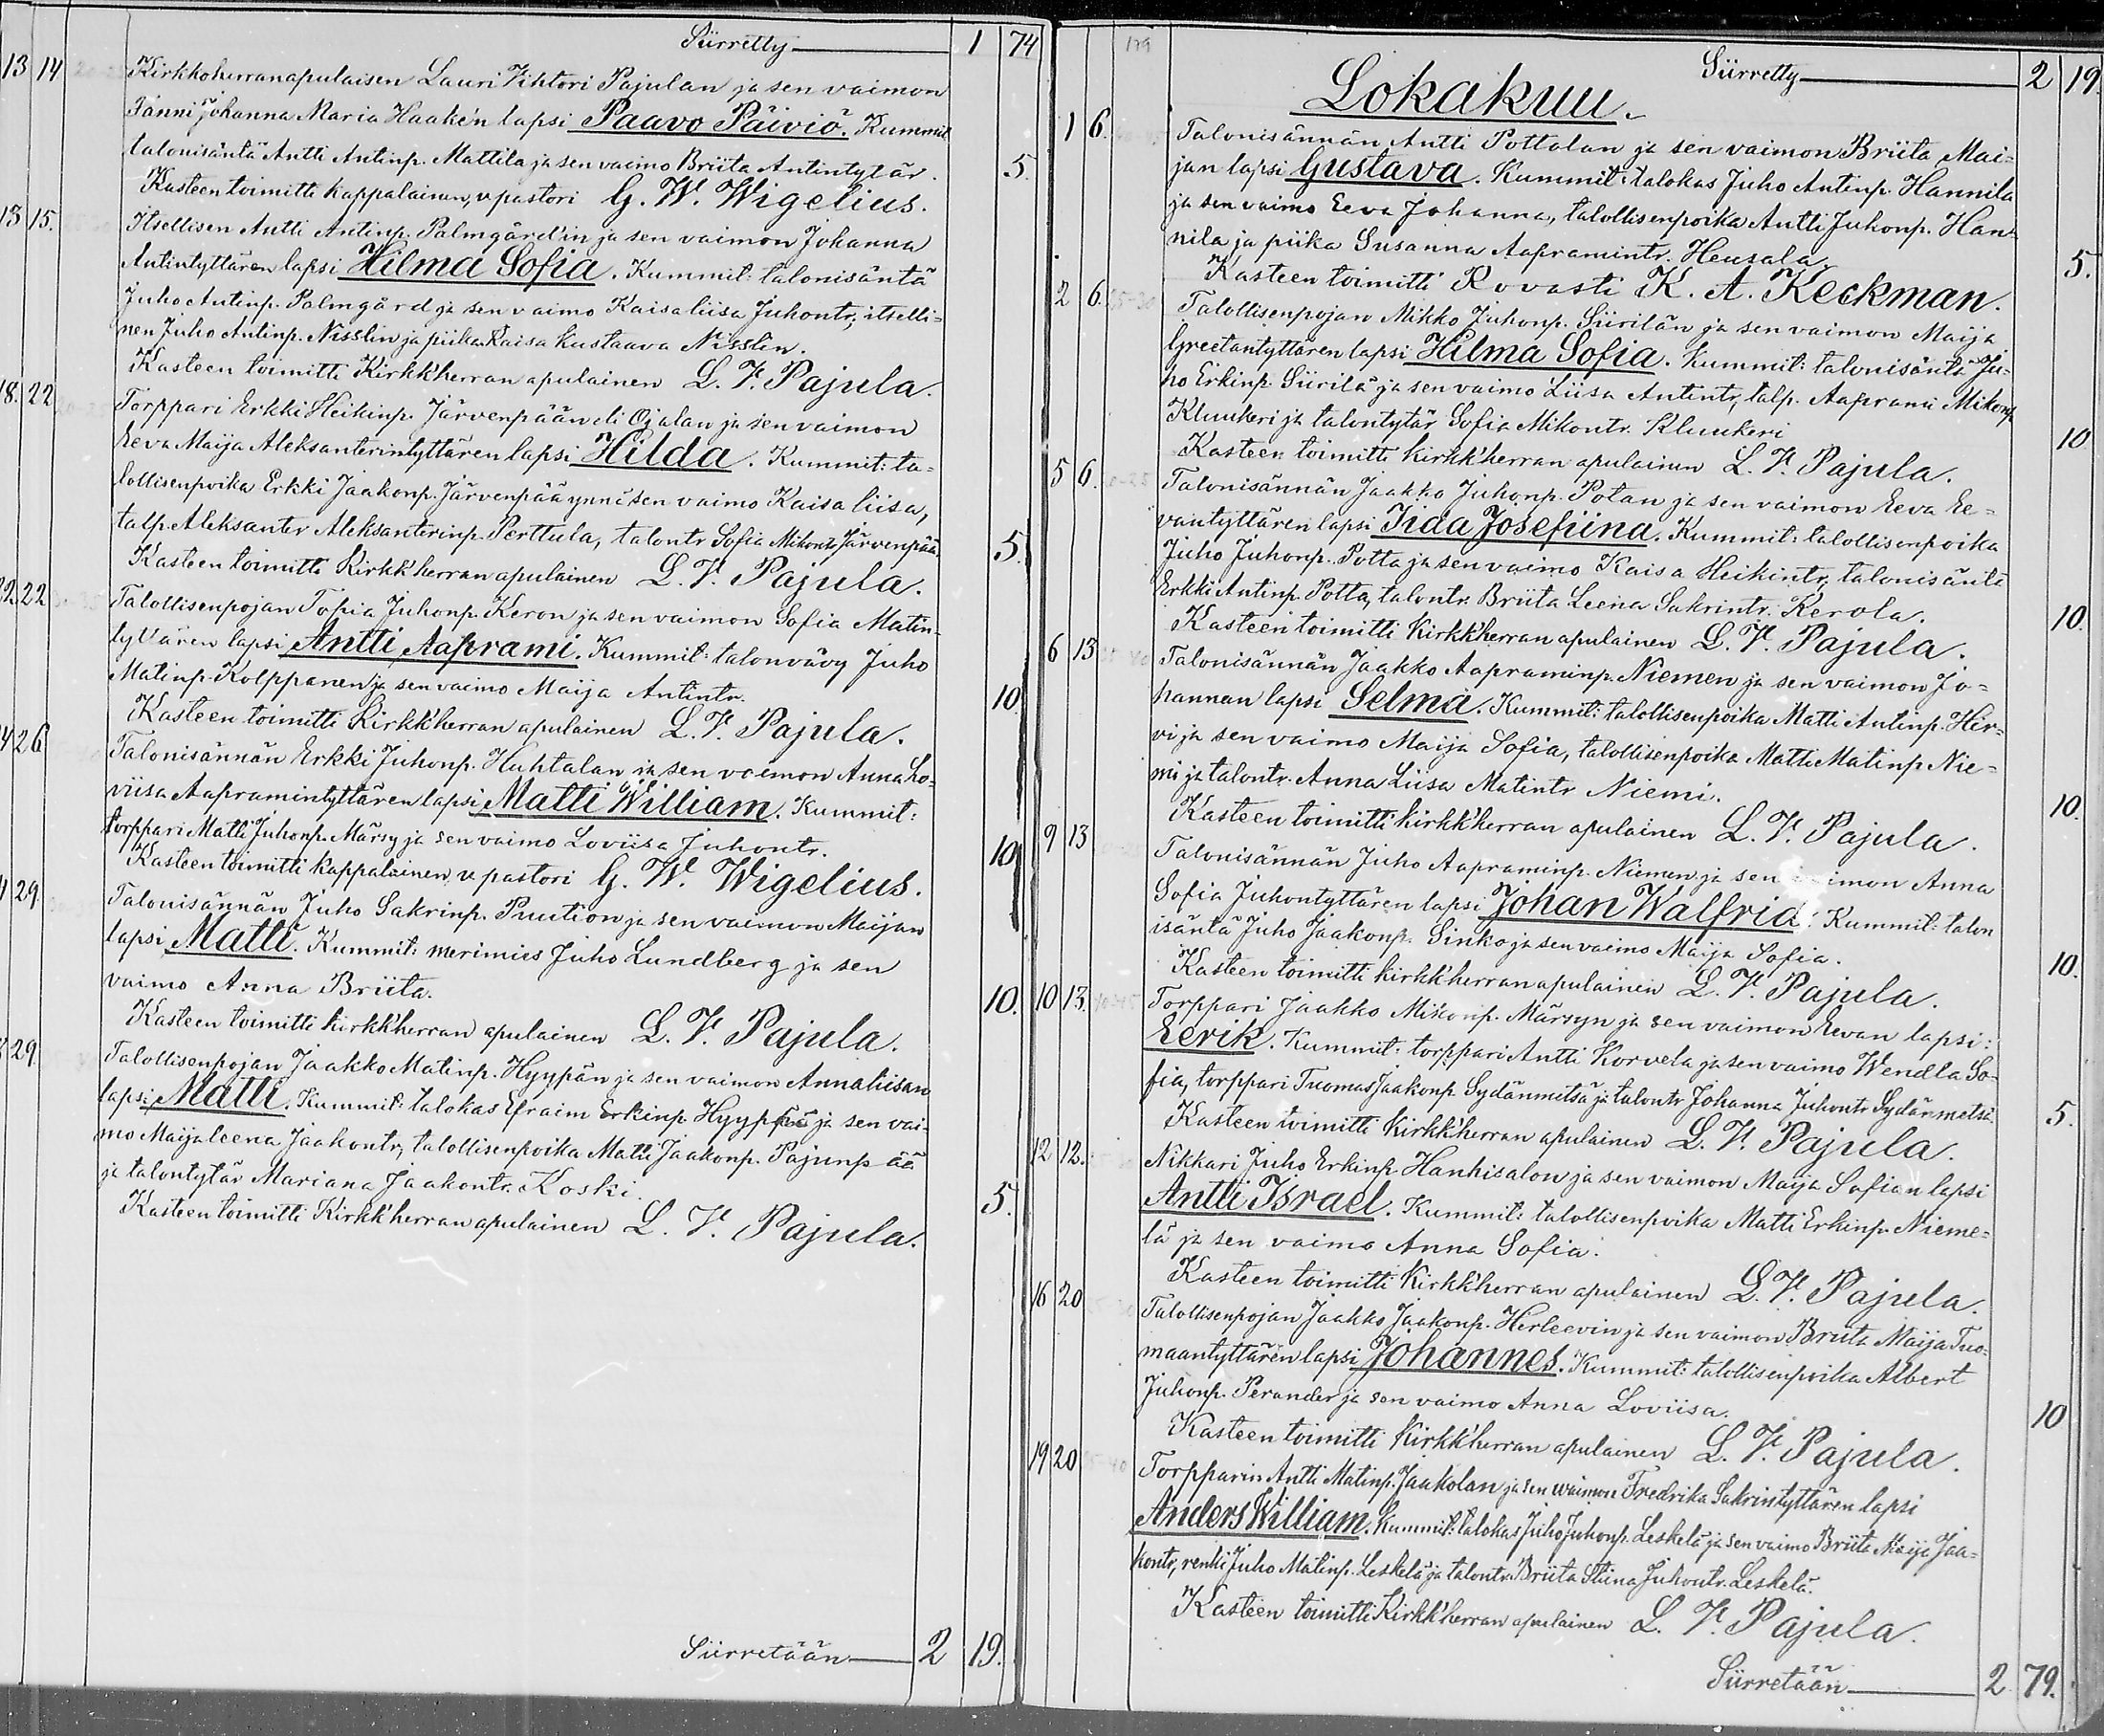 Siirretty 1 74
13 14 Kirkkoherranapulaisen Lauri Vihtori Pajulan ja sen vaimon
Fanni Johanna Maria Haake'n lapsi Paavo Päiviö. Kummit
talonisäntä Antti Antinp. Mattila ja sen vaimo Briita Antintytär. 5.
Kasteen toimitti kappalainen, v. pastori G. W. Wigelius.
13 15. Itsellisen Antti Antinp. Palmgård'in ja sen vaimon Johanna
Antintyttären lapsi Hilma Sofia. Kummit: talonisäntä
Juho Antinp. Palmgård ja sen vaimo Kaisa liisa Juhontr, itselli=
nen Juho Antinp. Nisslin ja piika Kaisa Kustaava Nisslin.
Kasteen toimitti Kirkk'herran apulainen L. V. Pajula.
18. 22 Torppari Erkki Heikinp. Järvenpään eli Ojalan ja sen vaimon
Eeva Maija Aleksanterintyttären lapsi Hilda. Kummit: ta=
lollisenpoika Erkki Jaakonp. Järvenpää ynnä sen vaimo Kaisa liisa,
talp. Aleksanter Aleksanterinp. Perttula, talontr Sofia Mikontr Järvenpää. 5.
Kasteen toimitti Kirkk'herran apulainen L. V. Pajula.
22 22 Talollisenpojan Topia Juhonp. Keron ja sen vaimon Sofia Matin=
tyttären lapsi Antti Aaprami. Kummit: talonvävy Juho
Matinp. Kolppanen ja sen vaimo Maija Antintr. 10
Kasteen toimitti Kirkk'herran apulainen L. V. Pajula.
26 Talonisännän Erkki Juhonp. Huhtalan ja sen vaimon Anna Lo=
viisa Aapramintyttären lapsi Matti William. Kummit:
torppari Matti Juhonp. Märsy ja sen vaimo Loviisa Juhontr. 10
Kasteen toimitti kappalainen, v. pastori G. W. Wigelius.
29. Talonisännän Juho Sakrinp. Puution ja sen vaimon Maijan
lapsi Matti. Kummit: merimies Juho Lundberg ja sen
vaimo Anna Briita. 10.
Kasteen toimitti kirkk'herran apulainen L. V. Pajula.
29. Talollisenpojan Jaakko Matinp. Hyypän ja sen vaimon Annaliisan
lapsi Matti. Kummit: talokas Efraim Erkinp. Hyyppä ja sen vai=
mo Maijaleena Jaakontr, talollisenpoika Matti Jaakonp. Pajunpää
ja talontytär Mariana Jaakontr. Koski. 5.
Kasteen toimitti Kirkk'herran apulainen L. V. Pajula.
Siirretään 2 19.
179
Siirretty 2 19.
Lokakuu.
1 6. Talonisännän Antti Pottalan ja sen vaimon Briita Mai=
jan lapsi Gustava. Kummit: talokas Juho Antinp. Hannila
ja sen vaimo Eeva Johanna, talollisenpoika Antti Juhonp. Han=
nila ja piika Susanna Aapramintr. Heusala. 5.
Kasteen toimitti Rovasti K. A. Keckman.
2 6. 25-30 Talollisenpojan Mikko Juhonp. Siirilän ja sen vaimon Maija
Greetantyttären lapsi Hilma Sofia. Kummit: talonisäntä Ju=
ho Erkinp. Siirilä ja sen vaimo Liisa Antintr, talp. Aaprami Mikonp.
Kluukeri ja talontytär Sofia Mikontr. Kluukeri 10
Kasteen toimitti kirkk'herran apulainen L. V. Pajula.
5 6. Talonisännän Jaakko Juhonp. Potan ja sen vaimon Eeva Ee=
vantyttären lapsi Iida Josefiina. Kummit: talollisenpoika
Juho Juhonp. Potta ja sen vaimo Kaisa Heikintr, talonisäntä
Erkki Antinp. Potta, talontr. Briita Leena Sakrintr. Kerola. 10.
Kasteen toimitti Kirkk'herran apulainen L. V. Pajula.
6 13 Talonisännän Jaakko Aapraminp. Niemen ja sen vaimon Jo=
hannan lapsi Selma. Kummit: talollisenpoika Matti Antinp. Hir=
vi ja sen vaimo Maija Sofia, talollisenpoika Matti Matinp. Nie=
mi ja talontr. Anna Liisa Matintr Niemi. 10.
Kasteen toimitti kirkk'herran apulainen L. V. Pajula.
9 13 Talonisännän Juho Aapraminp. Niemen ja sen vaimon Anna
Sofia Juhontyttären lapsi Johan Walfrid. Kummit: talon
isäntä Juho Jaakonp. Sinko ja sen vaimo Maija Sofia. 10.
Kasteen toimitti kirkk'herran apulainen L. V. Pajula.
10 13. Torppari Jaakko Mikonp. Märsyn ja sen vaimon Eevan lapsi:
Eerik. Kummit: torppari Antti Korvela ja sen vaimo Wendla So=
fia, torppari Tuomas Jaakonp. Sydänmetsä ja talontr Johanna Juhontr Sydänmetsä. 5.
Kasteen toimitti Kirkk'herran apulainen L. V. Pajula.
12 12. Nikkari Juho Erkinp. Hanhisalon ja sen vaimon Maija Sofian lapsi
Antti Israel. Kummit: talollisenpoika Matti Erkinp. Nieme=
lä ja sen vaimo Anna Sofia.
Kasteen toimitti Kirkk'herran apulainen L. V. Pajula.
16 20 Talollisenpojan Jaakko Jaakonp. Herleevin ja sen vaimon Briita Maija Tuo=
maantyttären lapsi Johannes. Kummit: talollisenpoika Albert
Juhonp. Perander ja sen vaimo Anna Loviisa. 10
Kasteen toimitti Kirkk'herran apulainen L. V. Pajula.
19 20 Torpparin Antti Matinp. Jaakolan ja sen waimon Fredrika Sakrintyttären lapsi
Anders William. Kummit: talokas Juho Juhonp. Leskelä ja sen vaimo Briita Maija Jaa=
kontr, renki Juho Matinp. Leskelä ja talontr. Briita Stiina Juhontr. Leskelä.
Kasteen toimitti Kirkk'herran apulainen L. V. Pajula.
Siirretään 2 79.